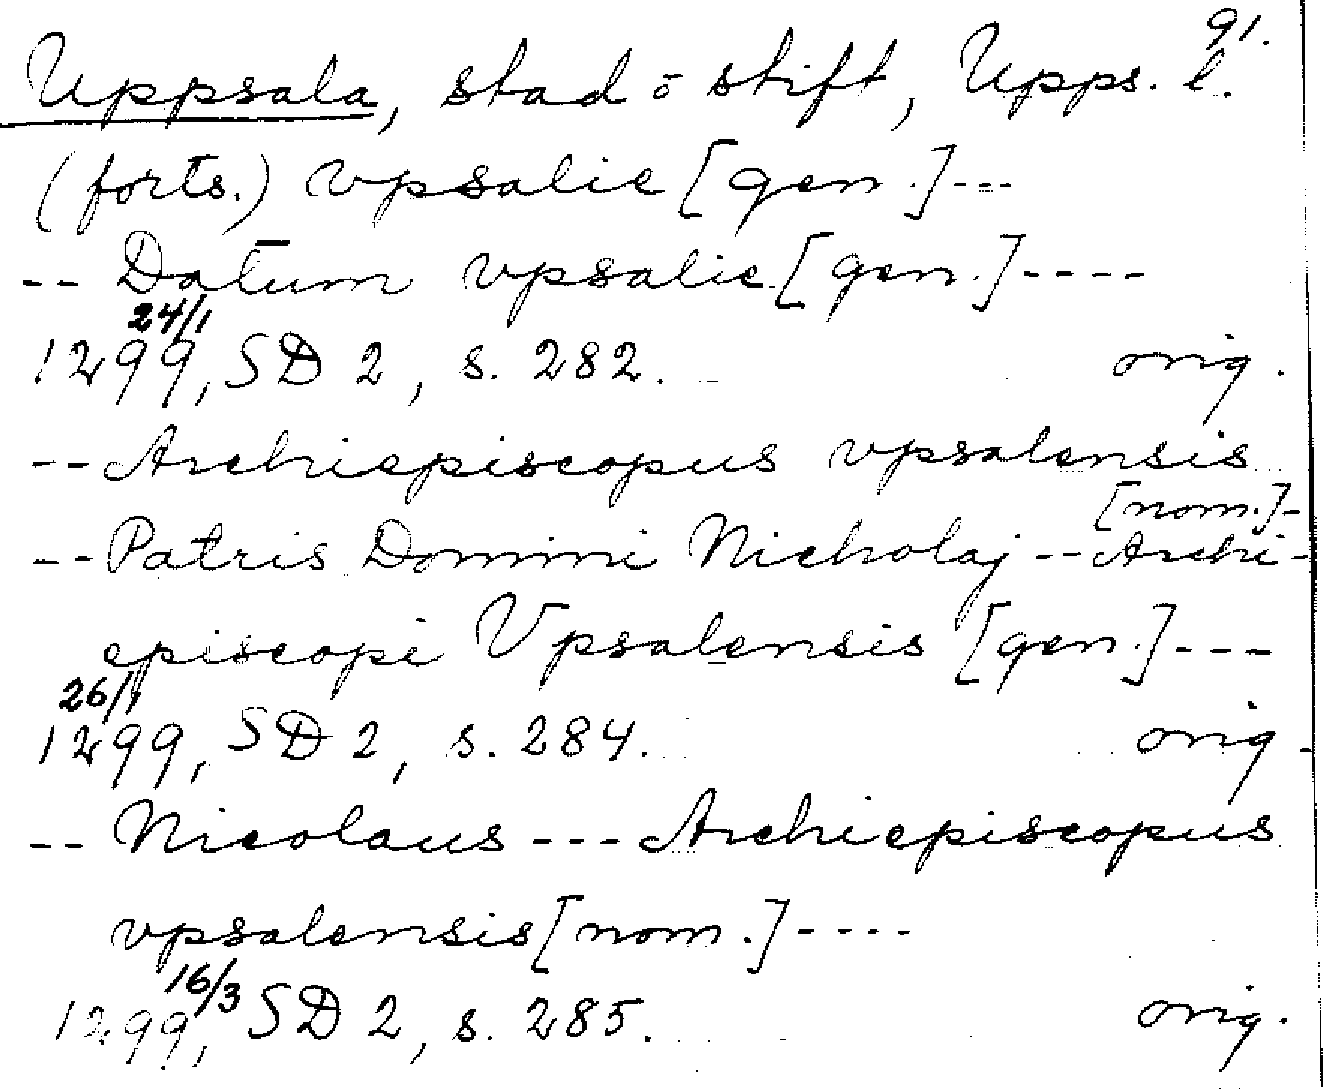 91.
Uppsala, stad o stift, Upps. l.
(forts.) vpsalie [gen.]---
-- Datum vpsalie [gen.]----
24/1
1299, SD 2, s. 282. orig.
-- Archiepiscopus vpsalensis
[nom.]-
-- Patris Domini Nicholaj -- Archi-
episcopi Vpsalensis [gen.]---
26/1
1299, SD 2, s. 284. orig.
-- Nicolaus --- Archiepiscopus
vpsalensis [nom.]----
16/3
1299, SD 2, s. 285. orig.